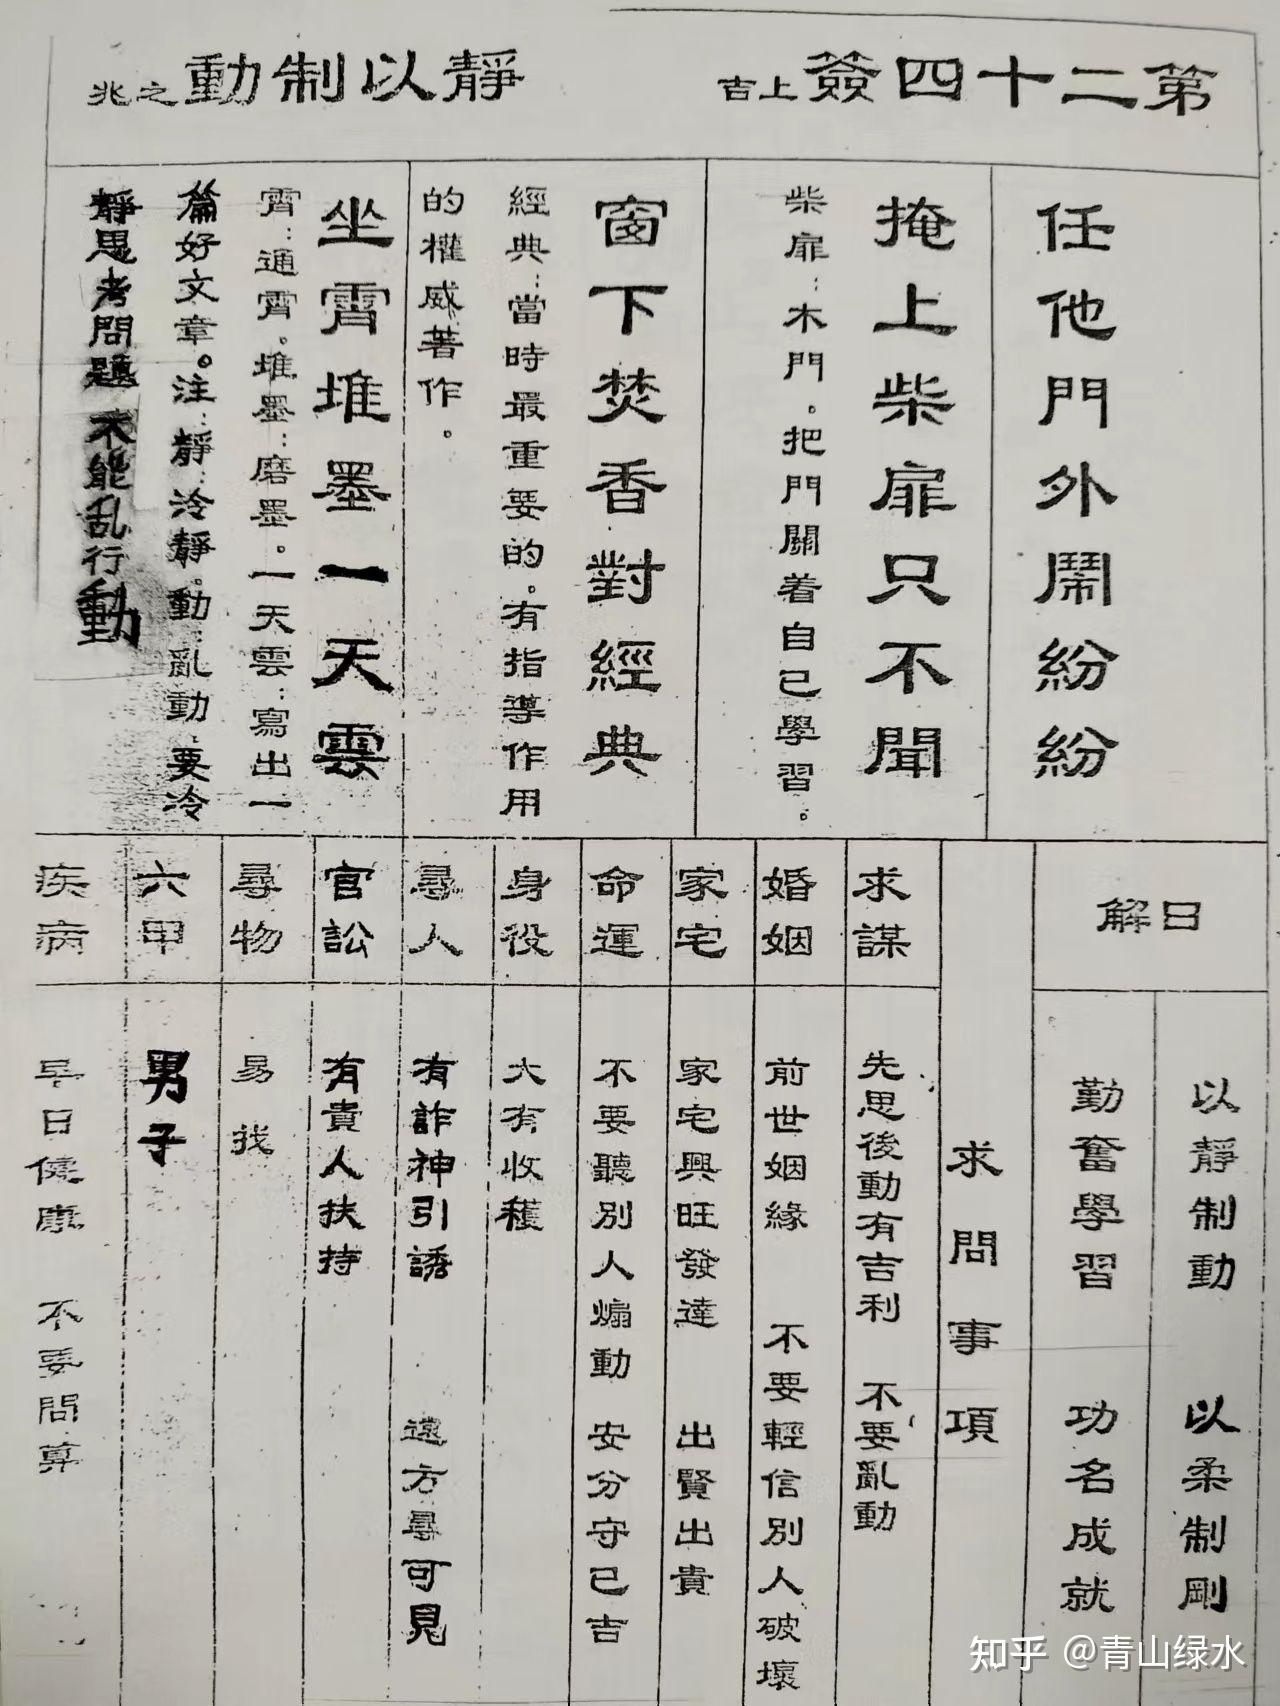 第二十四簽上吉
靜以制動之兆
任他門外鬧紛紛
掩上柴扉只不聞
柴扉:木門。把門關着自己學習。
窗下焚香對經典
經典:當時最重要的。有指導作用
的權威著作。
坐霄堆墨一天雲
霄:通霄。堆墨:磨墨。一天雲:寫出一
篇好文章。注:靜:冷靜。動:亂動.要冷
靜思考問題 不能乱行動
解曰
以靜制動 以柔制剛
勤奮學習 功名成就
求問事項
求謀
先思後動有吉利 不要亂動
婚姻
前世姻緣 不要輕信別人破壞
家宅
家宅興旺發達 出賢出貴
命運
不要聽別人煽動 安分守己吉
身役
大有收穫
尋人
有詐神引誘 遠方尋可見
官訟
有貴人扶持
尋物
易找
六甲
男子
疾病
早日健康 不要問算
知乎 @青山绿水